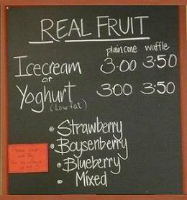 REAL FRUIT
plain cone waffle
Icecream 3·00 3·50
or
Yoghurt 3·00 3·50
(Low fat)
• Strawberry
• Boysenberry
• Blueberry
• Mixed